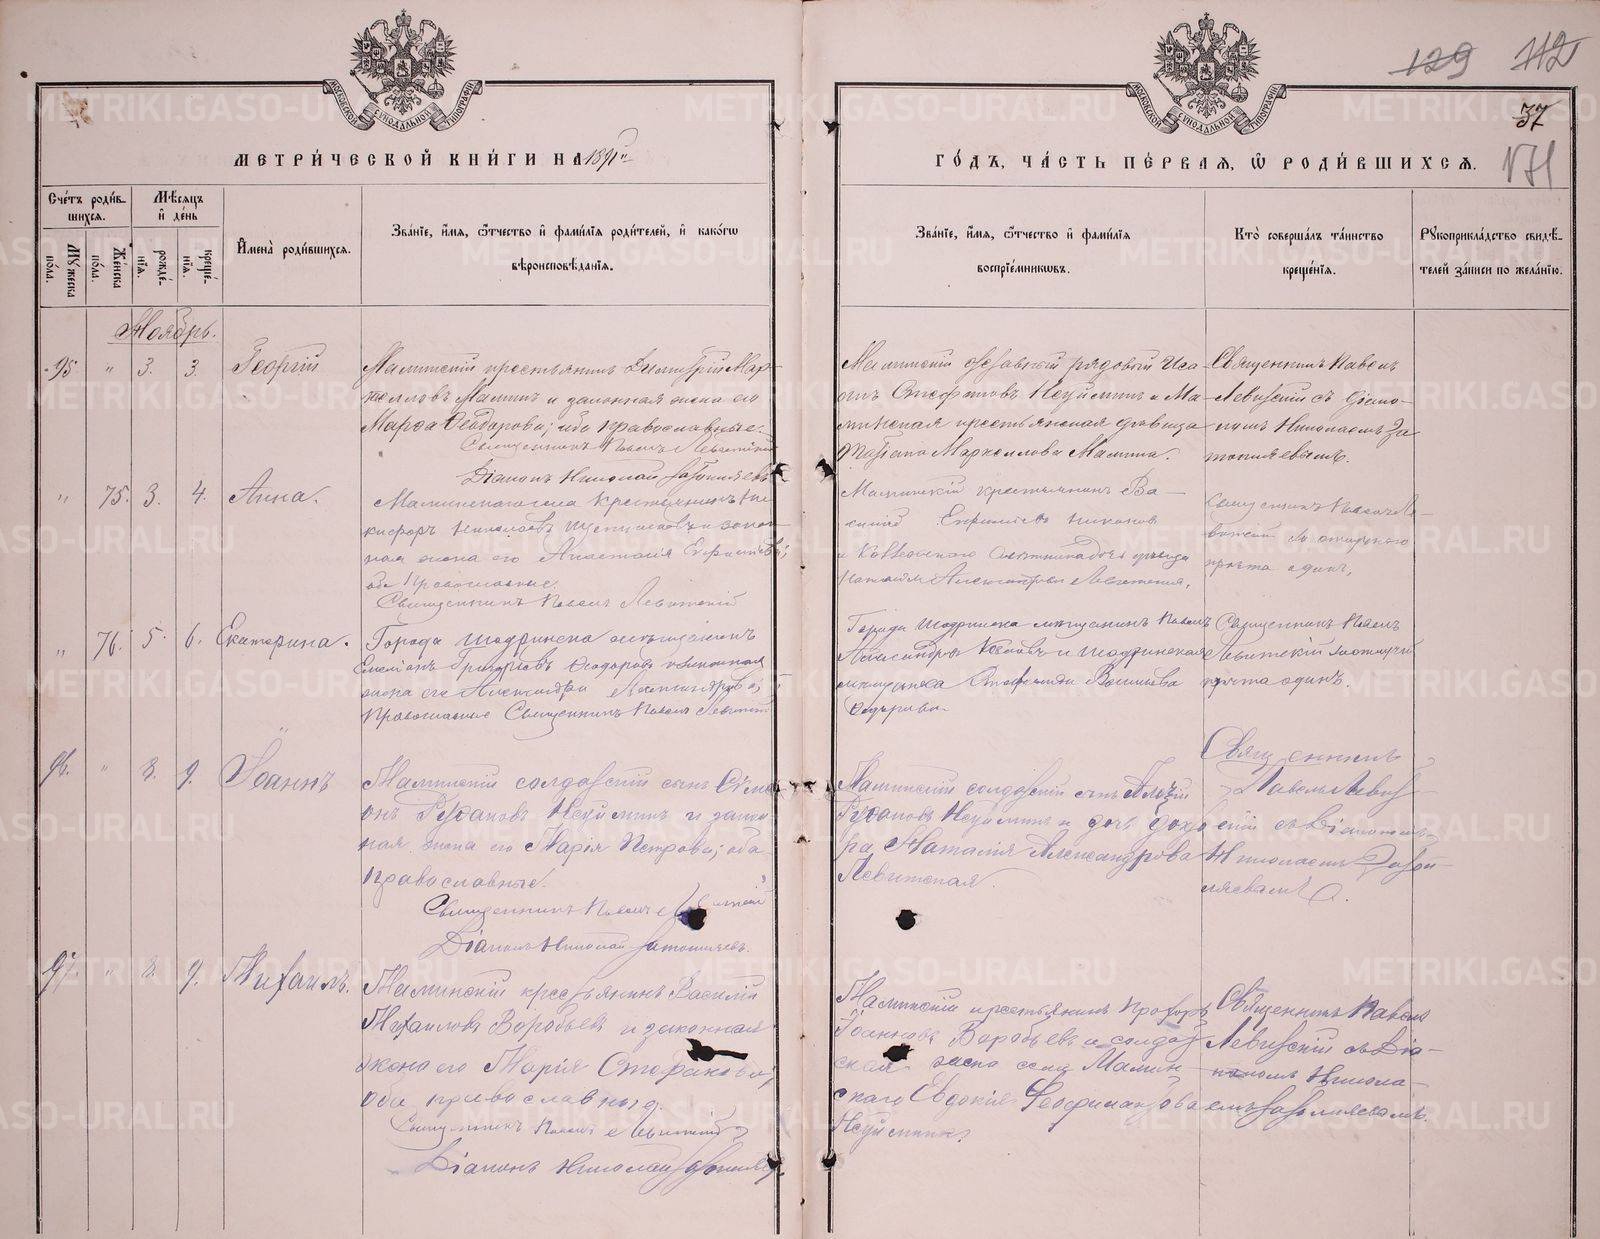 129 112
37
171
МОСКОВСКОЙ СѴНОДАЛЬНОЙ ТИПОГРАФІИ
МОСКОВСКОЙ СѴНОДАЛЬНОЙ ТИПОГРАФІИ
МЕТРИ́ЧЕСКОЙ КНИ́ГИ НА 1891
ГО́ДЪ, ЧА́СТЬ ПЕ́РВАЯ, Ѽ РОДИ́ВШИХСЯ.
Сче́тъ роди́в-
шихся.
Мѣ́сяцъ
и҆ де́нь
Мꙋжеска
пола.
Же́нска
пола.
рожде́-
нїя.
креще́-
нїя.
И҆мена̀ роди́вшихся.
Зва́нїе, и҆́мя, ѻ҆́тчество и҆ фами́лїя роди́телей, и҆ како́гѡ
вѣроисповѣ́данїя.
Зва́нїе, и҆́мя, ѻ҆́тчество и҆ фами́лїя
воспрїе́мникѡвъ.
Кто̀ соверша́лъ та́инство
креще́нїя.
Рꙋкоприкла́дство свидѣ́-
телей за́писи по жела́нїю.
Ноябрь.
95 " 3. 3. Георгій
Маминскій крестьянинъ Димитрій Мар-
келловъ Маминъ и законная жена его
Марѳа Ѳеодорова; оба православные.
Священникъ Павелъ Левитскій
Діаконъ Николай Затопляевъ
Маминскій отставный рядовый Иса-
акъ Стефановъ Неуйминъ и Ма-
минская крестьянская дѣвица
Татіана Маркеллова Мамина.
Священникъ Павелъ
Левитскій съ діако-
номъ Николаемъ За
топляевымъ.
" 75. 3. 4. Анна.
Маминскаго села Крестьянинъ Ни
кифоръ Николаевъ и закон-
ная жена его Анастасія Ефимова;
оба Православные.
Священникъ Павелъ Левитскій
Маминскій крестьянинъ Ва-
силій Ефимовъ Никоновъ
дѣвица
Наталія Александрова Левитская.
Священникъ Павелъ Ле-
" 76. 5. 6. Екатерина.
Города Шадринска мѣщанинъ
Григорьевъ Ѳеодоровъ и законная
жена его Александра Александрова;
Православные Священникъ Павелъ Левитскій
Города Шадринска мѣщанинъ Павелъ
Александровъ и Шадринская
мѣщанка Стефанида Васильева
Ѳедорова.
Священникъ Павелъ
Левитскій
96. " 8. 9. Іоаннъ
Маминскій солдатскій сынъ Сѵме-
онъ Руфановъ Неуйминъ и закон-
ная жена его Марія Петрова; оба
православные.
Священникъ Павелъ Левитскій
Діаконъ Николай Затопляевъ.
Маминскій солдатскій сынъ
Руфановъ Неуйминъ и дочь
Наталія Александрова
Левитская.
Священникъ
Павелъ Левит-
скій съ Діакономъ
Николаемъ Затоп-
ляевымъ.
97. " 8. 9. Михаилъ.
Маминскій крестьянинъ Василій
Михаиловъ Воробьевъ и законная
жена его Марія Стефанова;
оба православные.
Священникъ Павелъ Левитскій
Діаконъ Николай Затопляевъ
Маминскій крестьянинъ Прохоръ
Іоанновъ Воробьевъ и солдат-
ская жена села Мамин-
скаго Евдокія Ѳеофилактова
Неуймина.
Священникъ Павелъ
Левитскій съ Діа-
кономъ Никола-
емъ Затопляевымъ.
METRIKI.GASO-URAL.RU